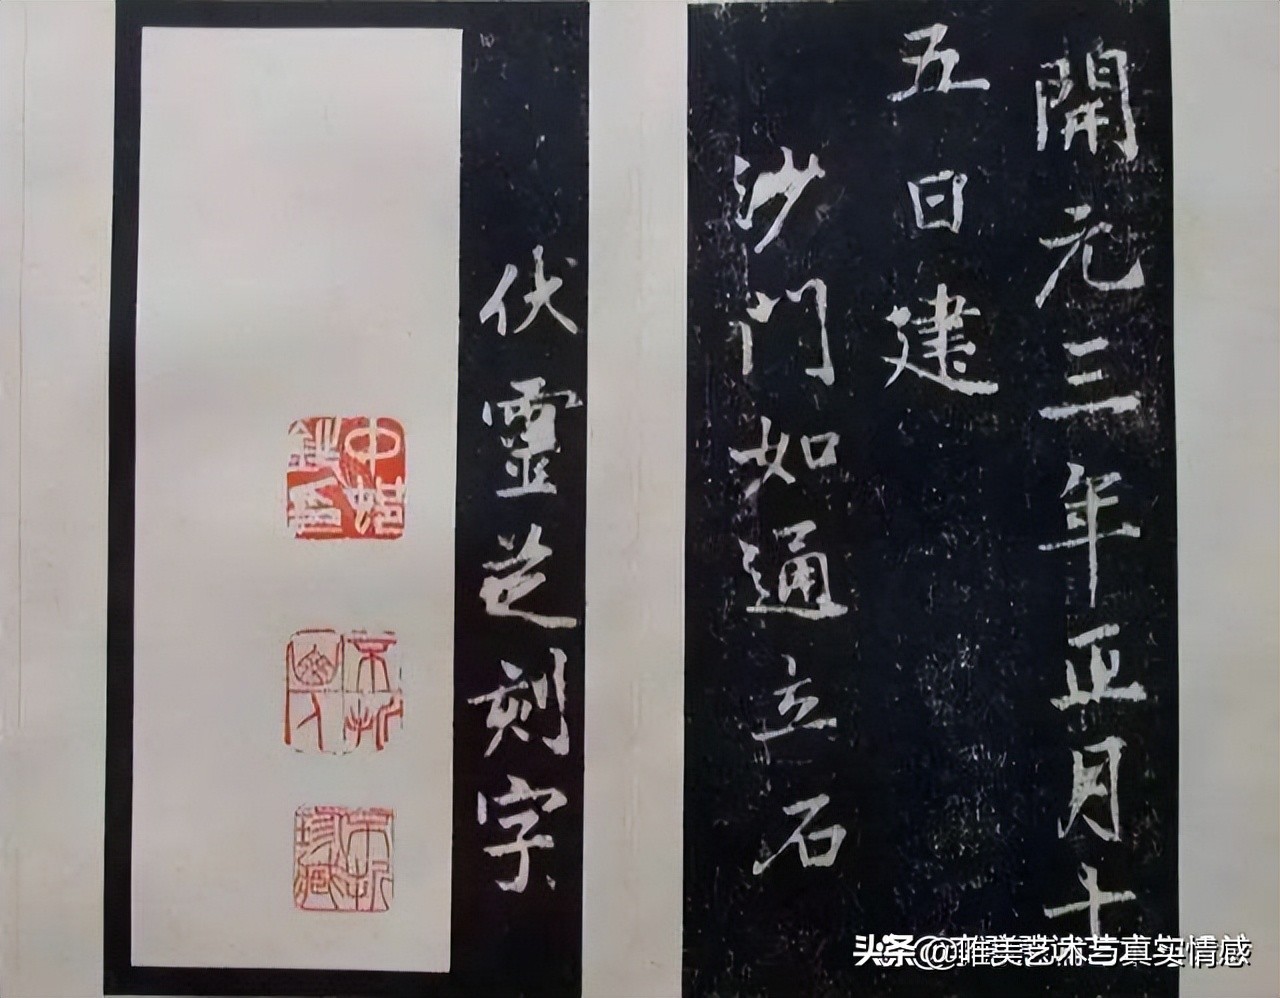 開元三年正月十
五日建
沙門如通立石
伏靈芝刻字
頭条 @唯美艺术与真实情感